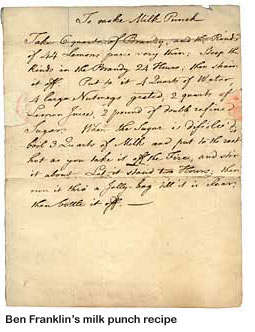 To make Milk Punch
Take 6 quarts of Brandy, and the Rinds
of 44 Lemons pared very thin; Steep the
Rinds in the Brandy 24 Hours; then strain
it off. Put to it 4 Quarts of Water,
4 large Nutmegs grated, 2 quarts of
Lemon Juice, 2 pound of double refined
Sugar. When the Sugar is dissolv'd
boil 3 Quarts of Milk and put to the rest
hot as you take it off the Fire, and stir
it about. Let it stand two Hours; then
run it thro' a Jelly-bag till it is clear;
then bottle it off. —
Ben Franklin's milk punch recipe